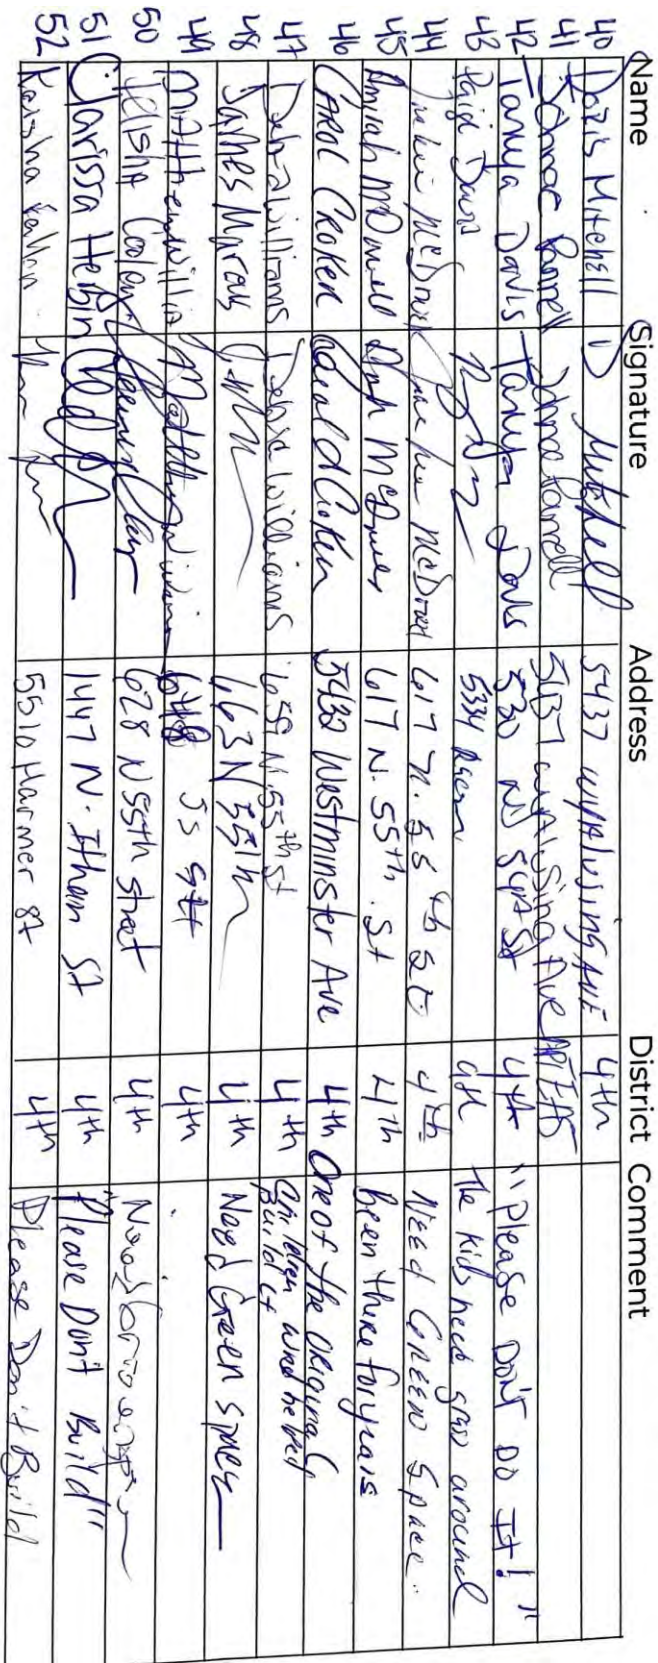 Name Signature Address District Comment
40 Doris Mitchell D Mitchell 5437 wyalusing AVE 4th
41 Farrell Farrell 5437 wyalusing Ave
42 Tanya Davis Tanya Davis 530 N 54th St 4th "Please DON'T DO IT!"
43 Paige Davis 5334 4th The kids need grass around
44 617 N. 55th St 4th NEED GREEN Space.
45 Amirah McDowell 617 N. 55th St 4th Been there for years
46 CAROL CROKEN Carol Croken 5432 Westminster Ave 4th One of the original
children who helped
build it
47 Debra Williams Debra Williams 659 N. 55th St 4th
48 James Marcus 663 N 55th 4th Need Green space
49 Matthew Williams 648 55 4th
50 628 N 55th Street 4th
51 Clarissa Herbin 1447 N. Ithan St 4th "Please Don't Build"
52 Keisha 5510 Harmer St 4th Please Don't Build